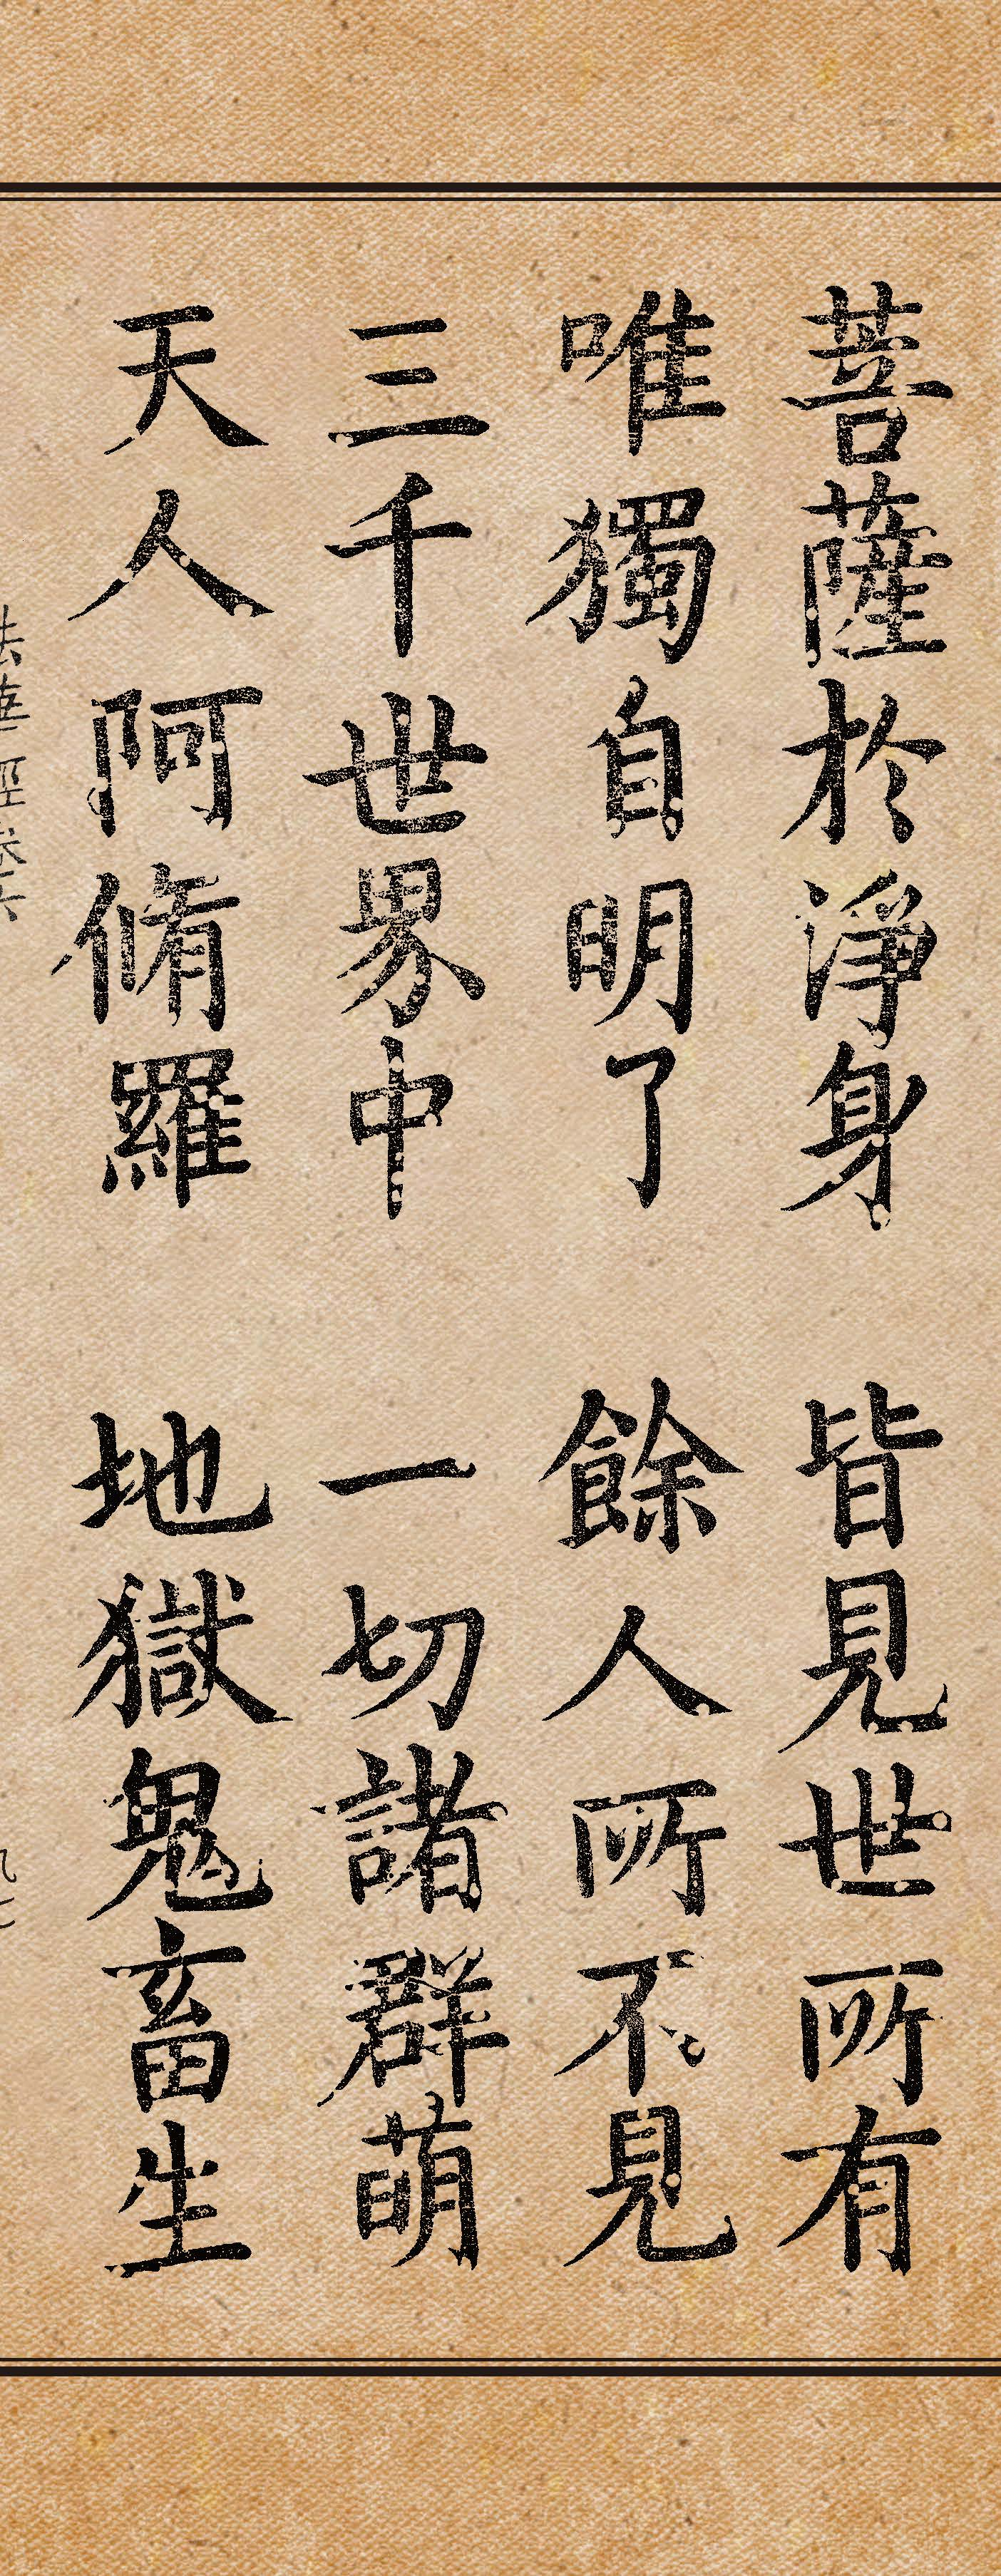 菩薩於淨身 皆見世所有
唯獨自明了 餘人所不見
三千世界中 一切諸群萌
天人阿脩羅 地獄鬼畜生
法華經卷六
九七